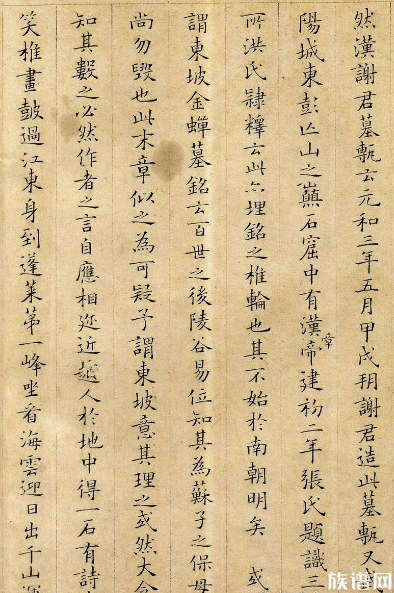 然漢謝君墓甎云元和三年五月甲戌朔謝君造此墓甎又
陽城東彭亾山之巔石窟中有漢章帝建初二年張氏題識三
所洪氏隸釋云此亦埋銘之椎輪也其不始於南朝明矣或
謂東坡金蟬墓銘云百世之後陵谷易位知其為蘇子之保母
尚勿毀也此末章似之為可疑予謂東坡意其理之或然大令
知其數之必然作者之言自應相迩近越人於地中得一石有詩
笑椎畫鼓過江東身到蓬萊苐一峰坐看海雲迎日出千山
族谱网